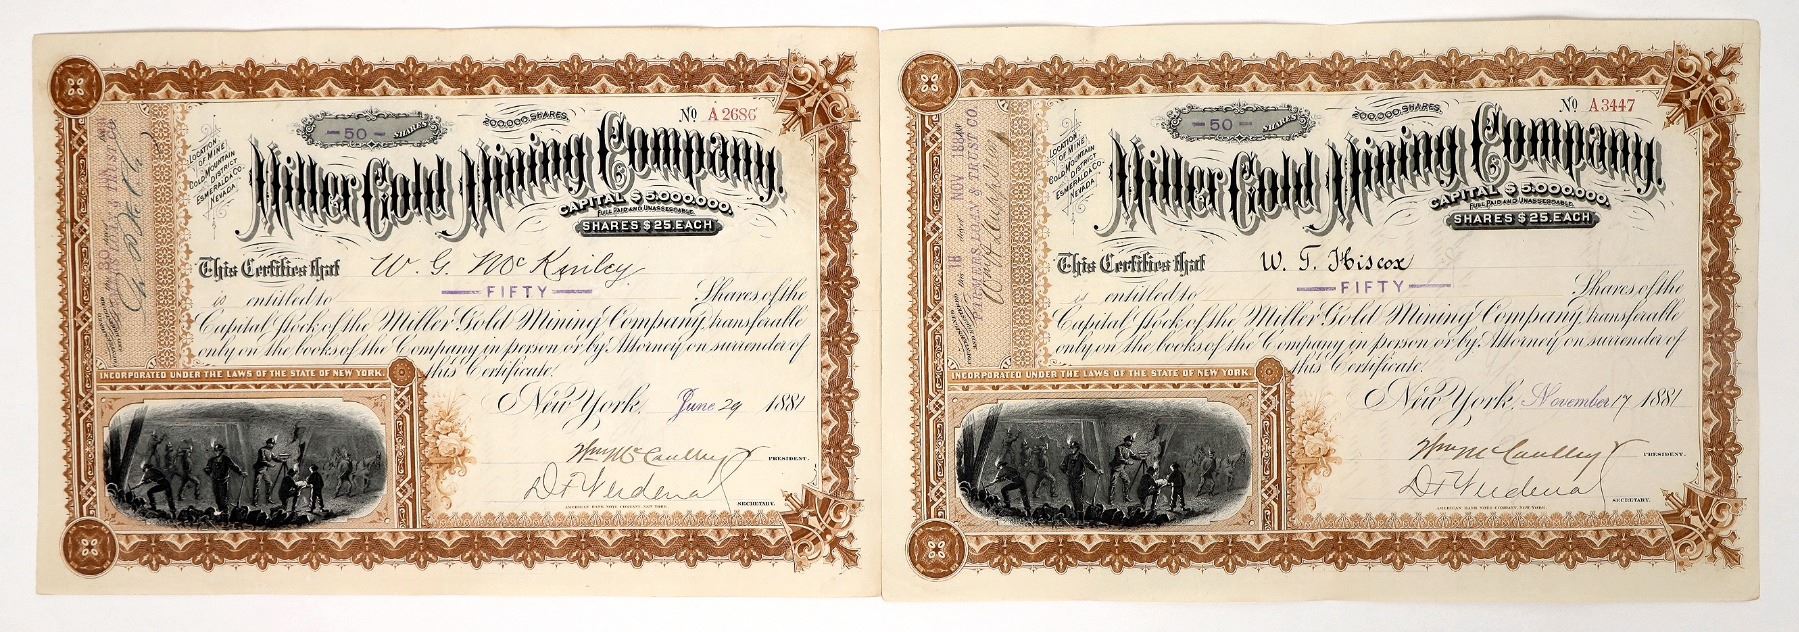 - 50 - SHARES
200,000, SHARES.
No A 2686
LOCATION
OF MINE
GOLD MOUNTAIN
DISTRICT
ESMERALDA CO.
NEVADA.
Miller Gold Mining Company.
CAPITAL $5,000,000.
FULL PAID AND UNASSESSABLE.
SHARES $25. EACH
This Certifies that W. G. McKinley
is entitled to FIFTY Shares of the
Capital Stock of the Miller Gold Mining Company, transferable
only on the books of the Company in person or by Attorney on surrender of
this Certificate.
INCORPORATED UNDER THE LAWS OF THE STATE OF NEW YORK.
New York, June 29 1881
Wm McCaulley
PRESIDENT.
SECRETARY.
AMERICAN BANK NOTE COMPANY, NEW YORK.
- 50 - SHARES
200,000, SHARES.
No A 3447
LOCATION
OF MINE
GOLD MOUNTAIN
DISTRICT
ESMERALDA CO.
NEVADA.
Miller Gold Mining Company.
CAPITAL $5,000,000.
FULL PAID AND UNASSESSABLE.
SHARES $25. EACH
This Certifies that W. T. Hiscox
is entitled to FIFTY Shares of the
Capital Stock of the Miller Gold Mining Company, transferable
only on the books of the Company in person or by Attorney on surrender of
this Certificate.
INCORPORATED UNDER THE LAWS OF THE STATE OF NEW YORK.
New York, November 17 1881
Wm McCaulley
PRESIDENT.
SECRETARY.
AMERICAN BANK NOTE COMPANY, NEW YORK.